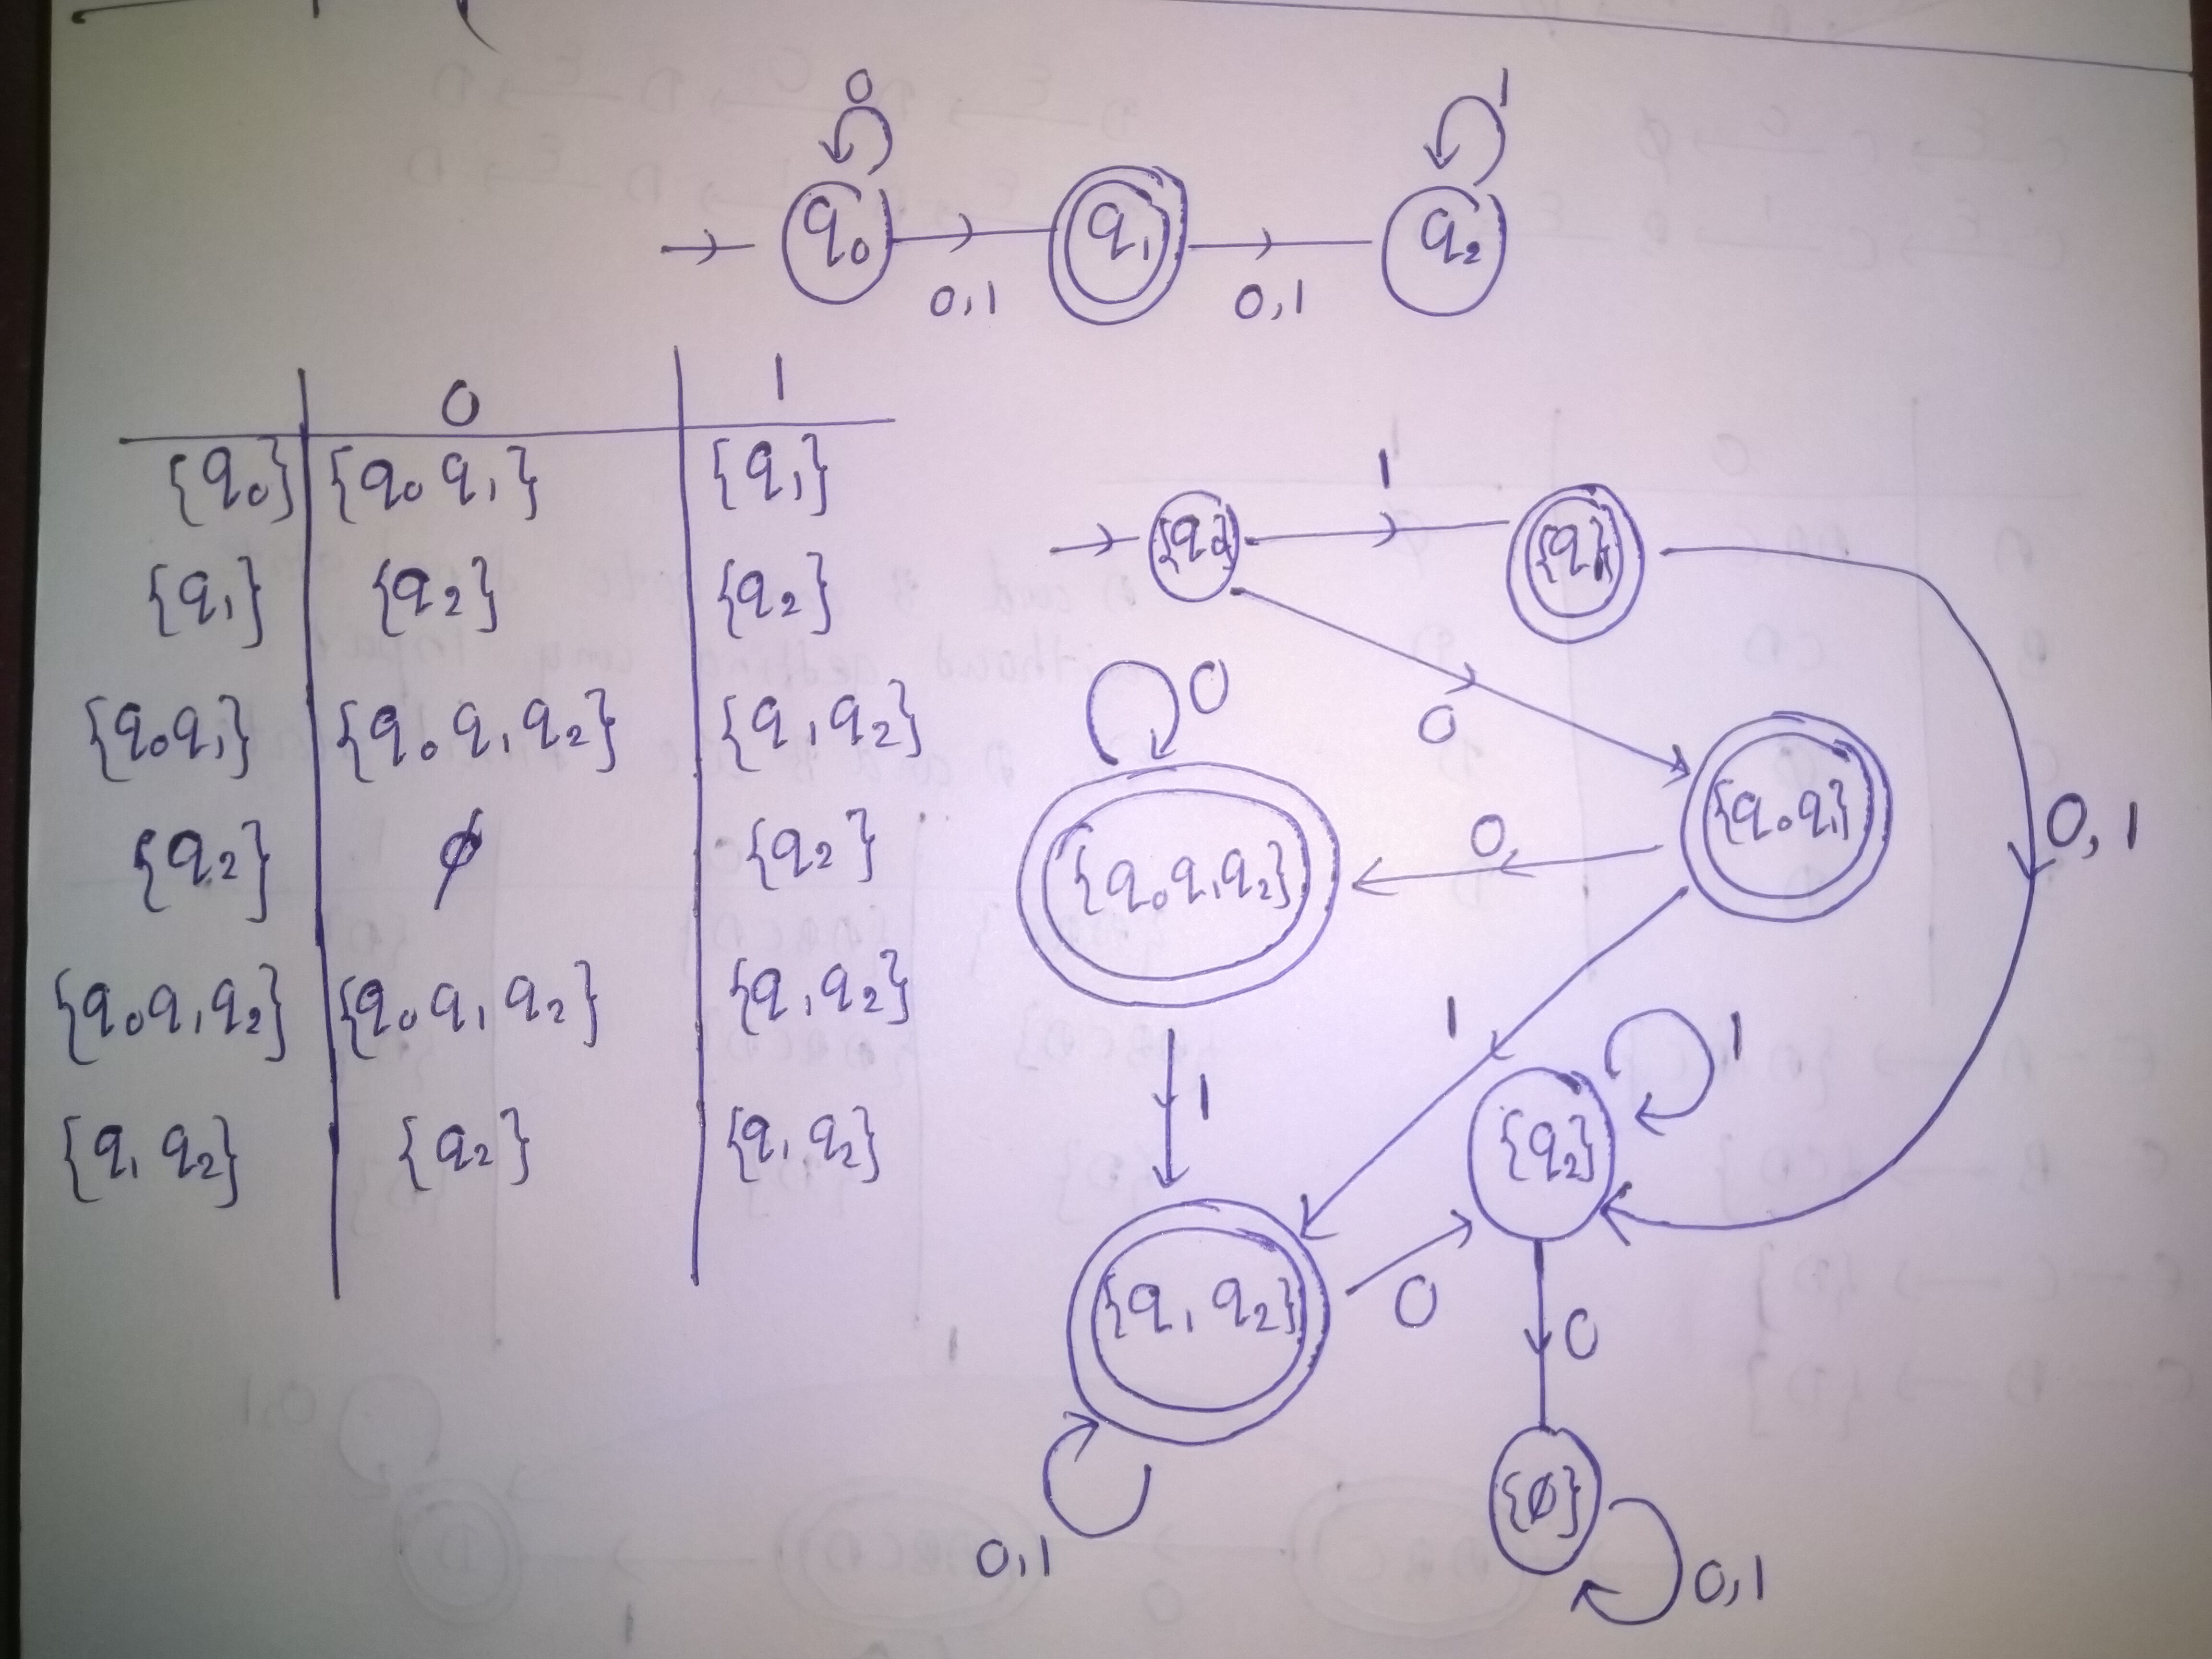 0 1
q₀ q₁ q₂
0,1 0,1
0 1
{q₀} {q₀ q₁} {q₁}
{q₁} {q₂} {q₂}
{q₀q₁} {q₀ q₁ q₂} {q₁ q₂}
{q₂} ϕ {q₂}
{q₀q₁q₂} {q₀ q₁ q₂} {q₁ q₂}
{q₁ q₂} {q₂} {q₁ q₂}
1
{q₀} {q₁}
0
0
{q₀q₁}
0,1
0
{q₀q₁q₂}
1
1
1
{q₂}
{q₁ q₂}
0
0
{ϕ}
0,1
0,1